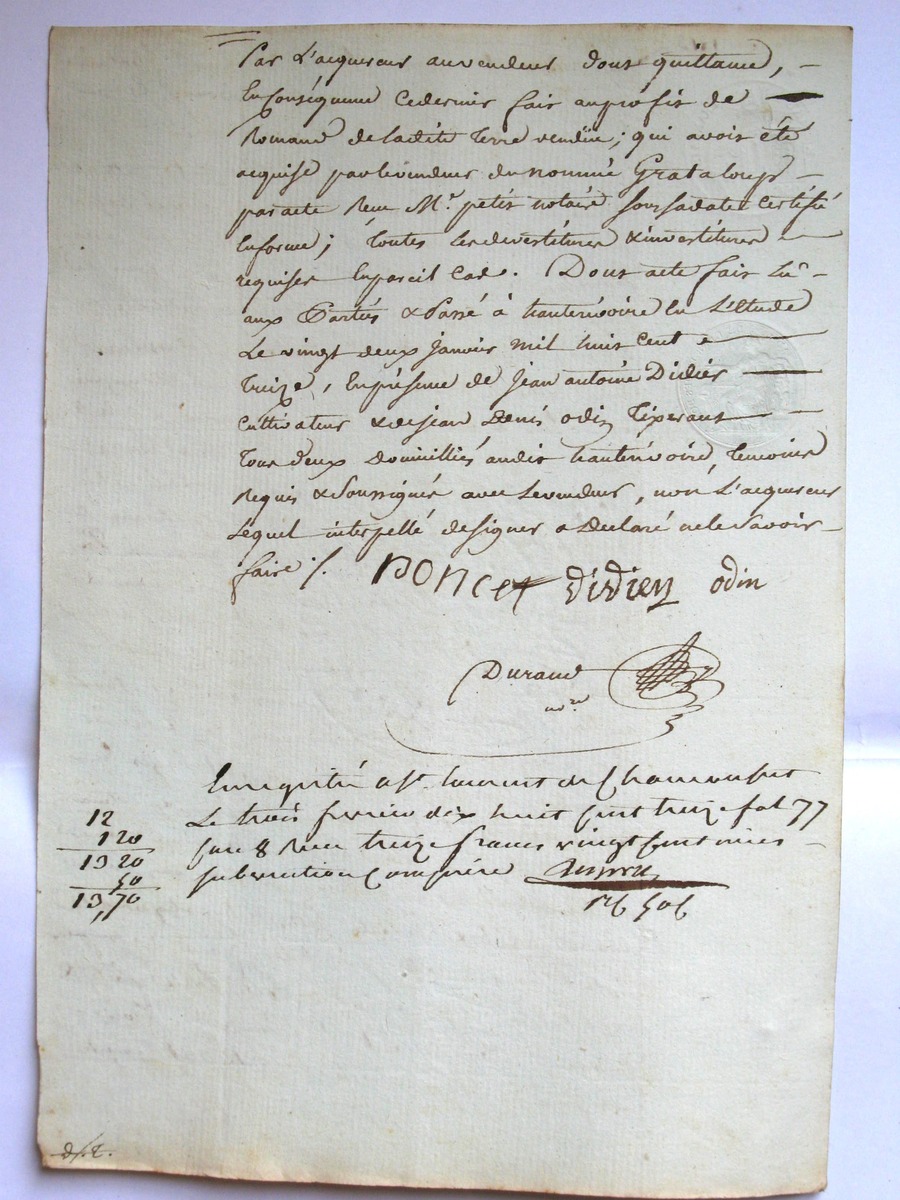 Par L'acquereur au vendeur dont quittance, —
En Conséquence Cedernier fait au profit de —
Romand de ladite Terre vendüe; qui avoit été
acquise par levendeur du nommé Grataloup —
par acte Reçu Mr. petit notaire sous sa date Certifié
En forme; Toutes les devestitures & investitures —
requises En pareil Cas. Dont acte fait Lû —
aux Parties & Passé à hauterivoire En L'Etude
Le vingt deux janvier mil huit Cent —
Treize, En présence de Jean antoine Didier —
Cultivateur & de jean Denis odin Tixerant —
Tous deux Domicilliés audit hauterivoire, Temoins
Requis & Soussignés avec Levendeur, non L'acquereur
Lequel interpellé de signer a Declaré ne le Savoir —
faire ./.
PONCet didier odin
Durand
nore
Enregistré a St. laurent de Chamousset
Le trois fevrier dix huit cent treize fol 77
case 8 Reçu treize francs vingt centimes —
subvention Comprise
12
1 20
13 20
50
13,70